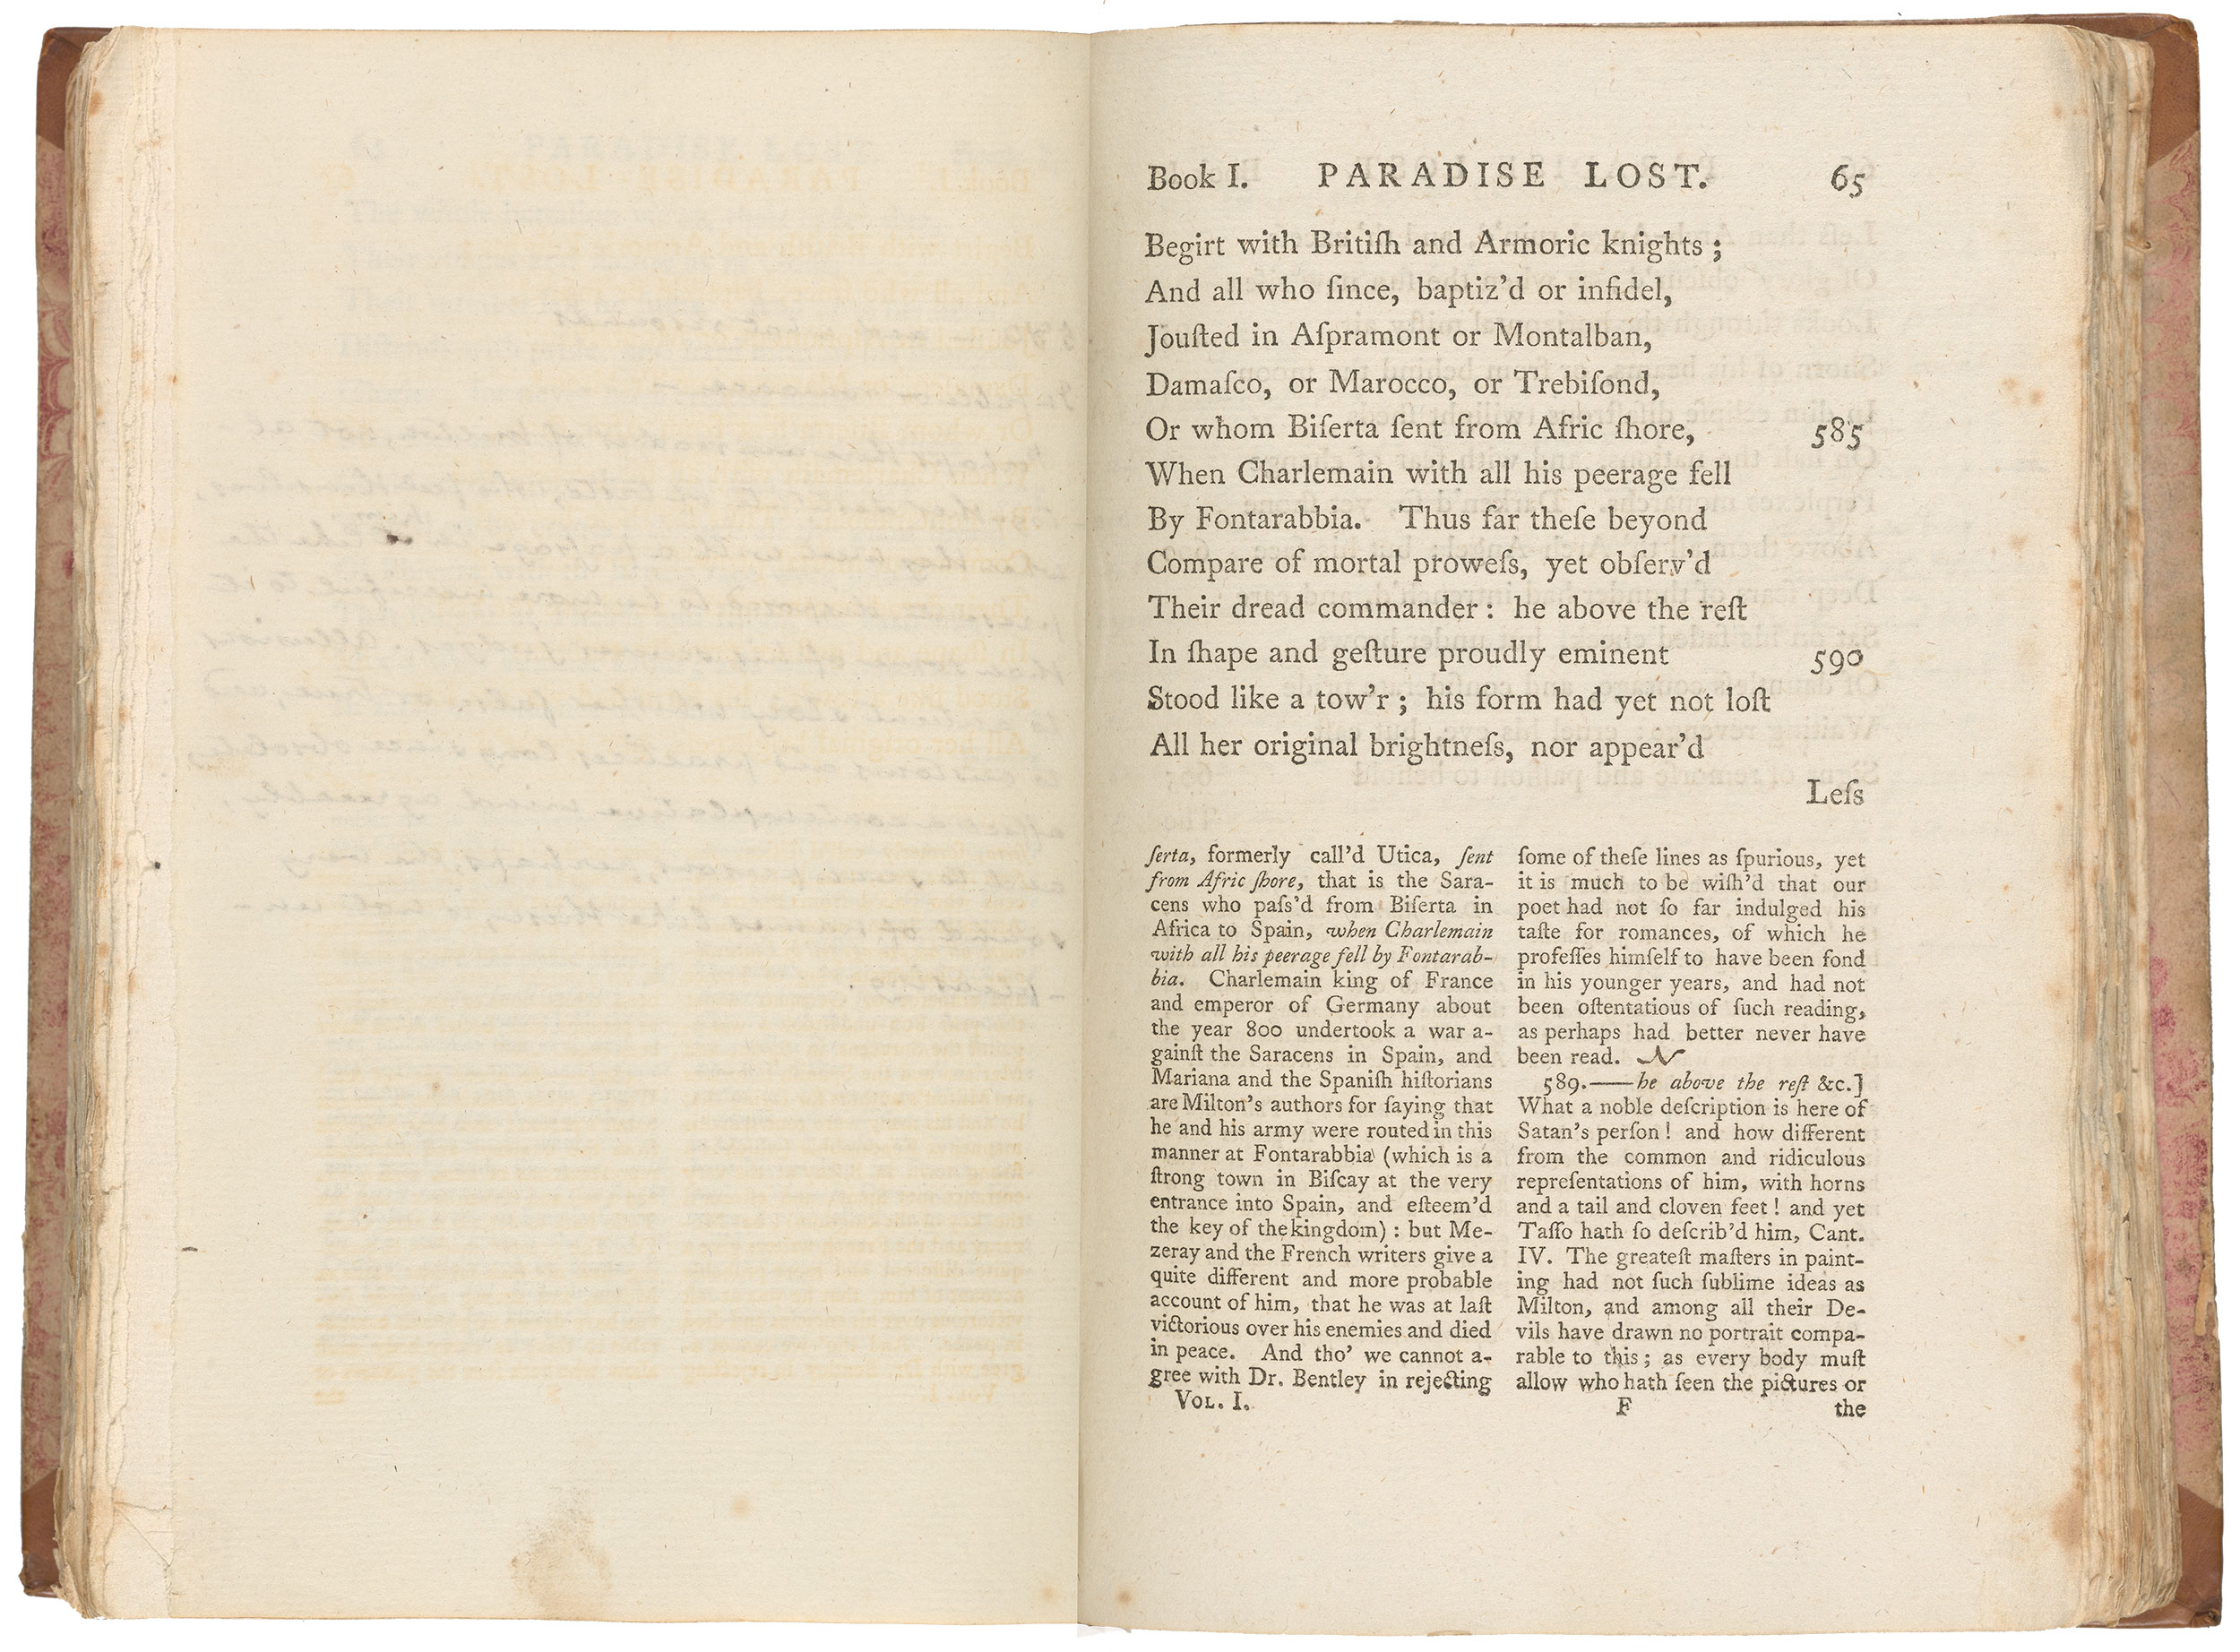 Book I. PARADISE LOST. 65
Begirt with Britiſh and Armoric knights ;
And all who ſince, baptiz'd or infidel,
Jouſted in Aſpramont or Montalban,
Damaſco, or Marocco, or Trebiſond,
Or whom Biſerta ſent from Afric ſhore, 585
When Charlemain with all his peerage fell
By Fontarabbia. Thus far theſe beyond
Compare of mortal proweſs, yet obſerv'd
Their dread commander : he above the reſt
In ſhape and geſture proudly eminent 590
Stood like a tow'r ; his form had yet not loſt
All her original brightneſs, nor appear'd
Leſs
ſerta, formerly call'd Utica, ſent
from Afric ſhore, that is the Sara-
cens who paſs'd from Biſerta in
Africa to Spain, when Charlemain
with all his peerage fell by Fontarab-
bia. Charlemain king of France
and emperor of Germany about
the year 800 undertook a war a-
gainſt the Saracens in Spain, and
Mariana and the Spaniſh hiſtorians
are Milton's authors for ſaying that
he and his army were routed in this
manner at Fontarabbia (which is a
ſtrong town in Biſcay at the very
entrance into Spain, and eſteem'd
the key of the kingdom) : but Me-
zeray and the French writers give a
quite different and more probable
account of him, that he was at laſt
victorious over his enemies and died
in peace. And tho' we cannot a-
gree with Dr. Bentley in rejecting
ſome of theſe lines as ſpurious, yet
it is much to be wiſh'd that our
poet had not ſo far indulged his
taſte for romances, of which he
profeſſes himſelf to have been fond
in his younger years, and had not
been oſtentatious of ſuch reading,
as perhaps had better never have
been read. N
589.——he above the reſt &c.]
What a noble deſcription is here of
Satan's perſon ! and how different
from the common and ridiculous
repreſentations of him, with horns
and a tail and cloven feet ! and yet
Taſſo hath ſo deſcrib'd him, Cant.
IV. The greateſt maſters in paint-
ing had not ſuch ſublime ideas as
Milton, and among all their De-
vils have drawn no portrait compa-
rable to this ; as every body muſt
allow who hath ſeen the pictures or
VOL. I. F the